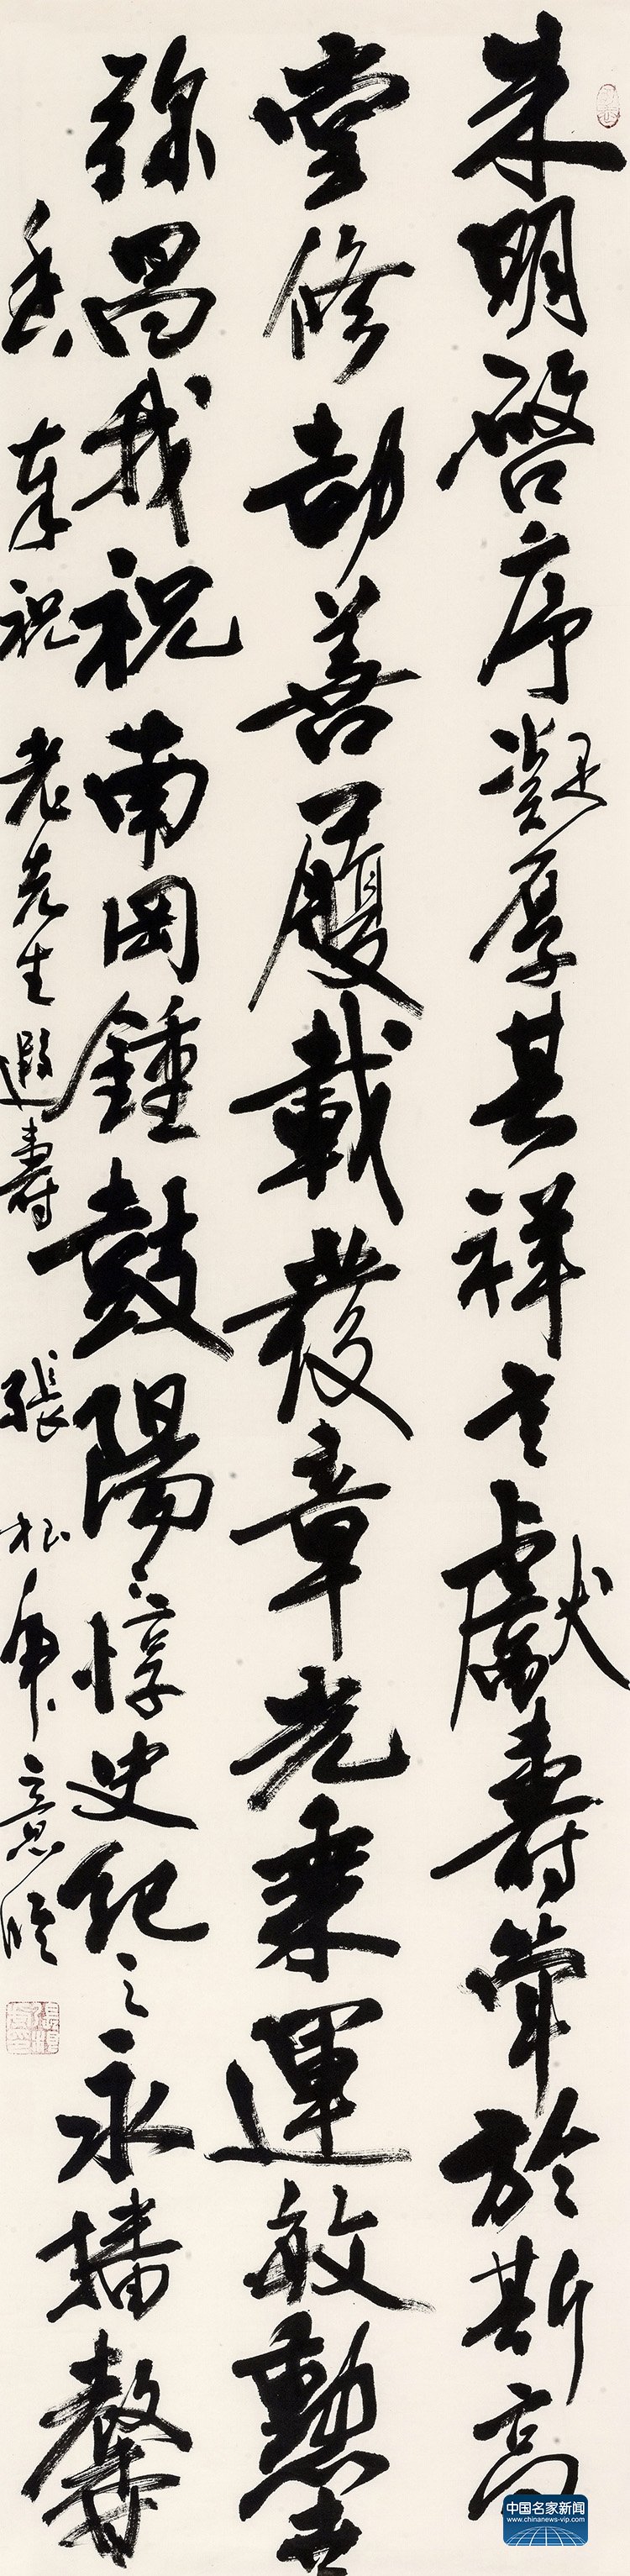 朱明啓序凝厚其祥言獻壽於斯高
堂修劭善履載發章光乘運敏懃
彌昌我祝南岡鍾鼓陽〻惇史紀之永播馨
香 奉祝 老先生遐壽 張 意臨
中国名家新闻
www.chinanews-vip.com